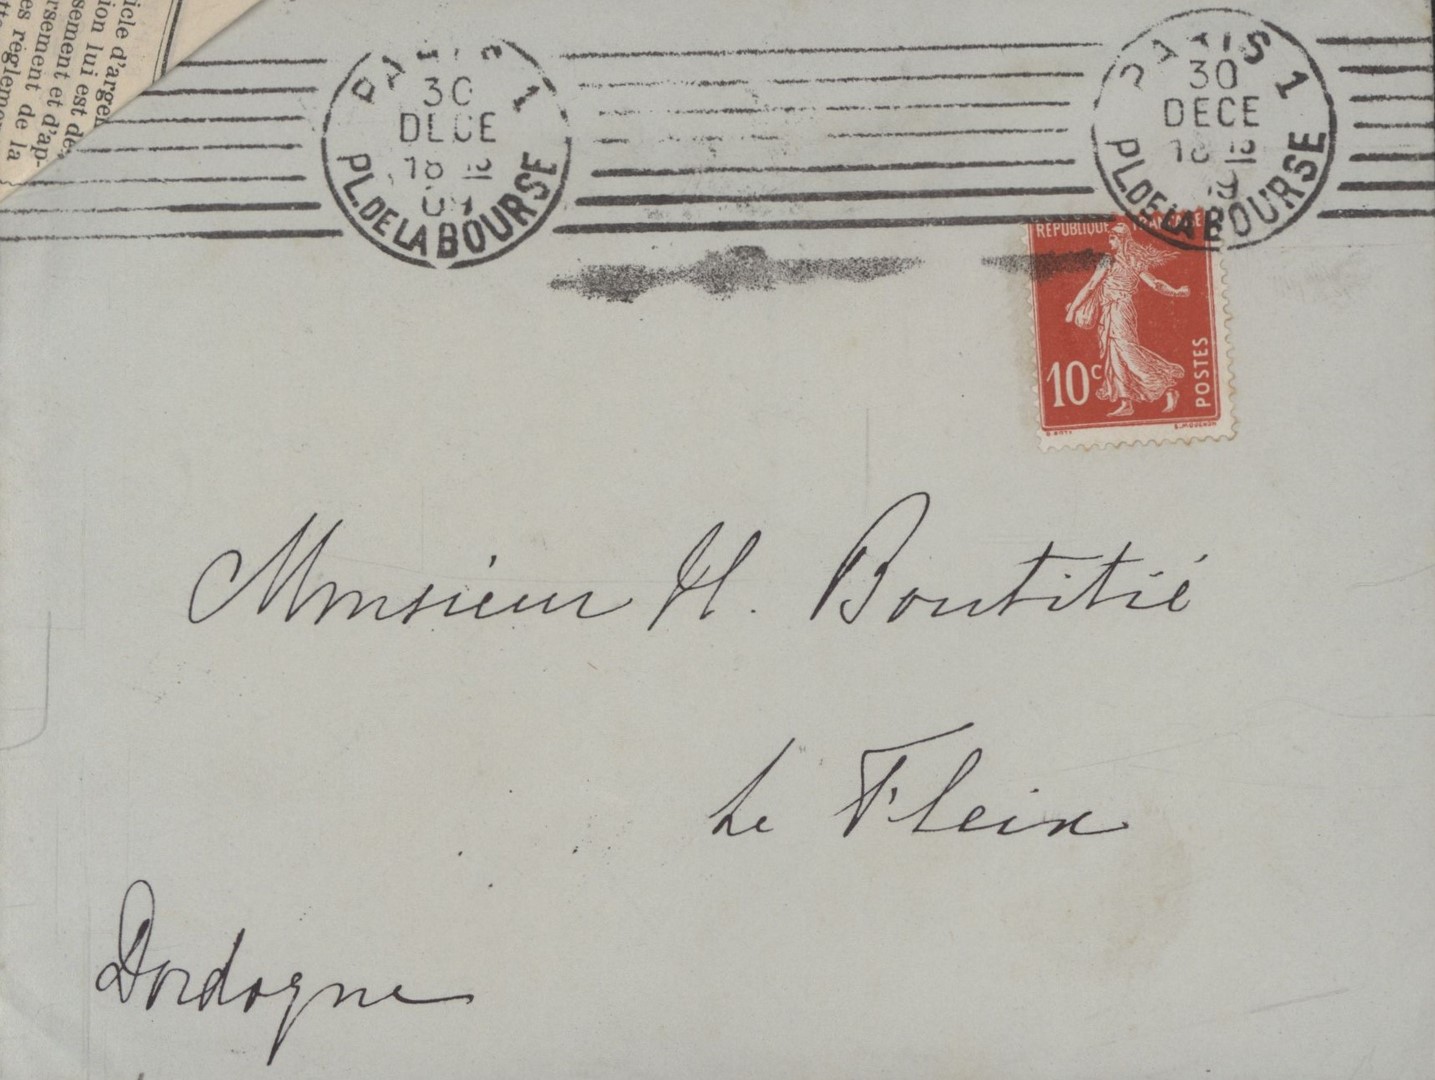 icle d'argen
ion lui est de
sement et d'ap-
rsement de la
es règlemen
PARIS 1
30
DECE
18
09
PL. DE LA BOURSE
PARIS 1
30
DECE
18
09
PL. DE LA BOURSE
REPUBLIQUE FRANÇAISE
10c
POSTES
E. MOUCHON
Monsieur H. Boutitié
Le Fleix
Dordogne